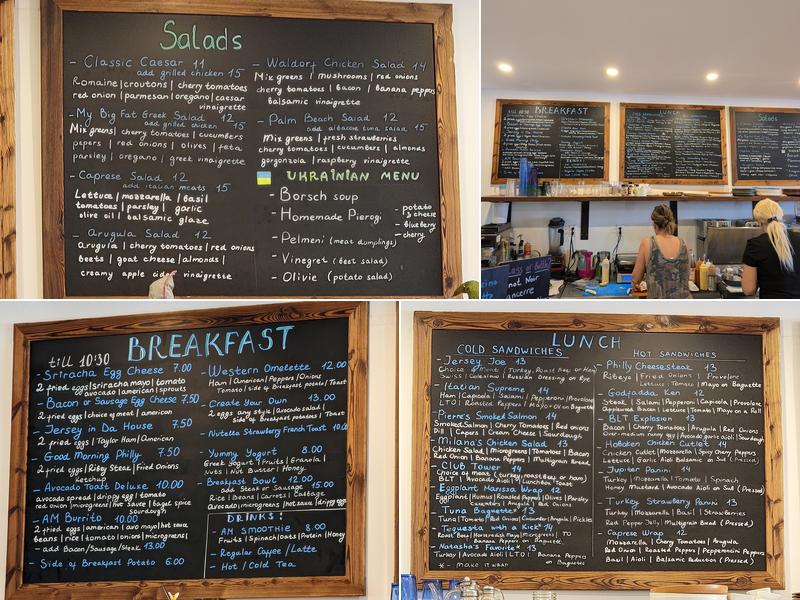 Salads
- Classic Caesar 11
add grilled chicken 15
Romaine | croutons | cherry tomatoes
red onion | parmesan | oregano | caesar
vinaigrette
- My Big Fat Greek Salad 12
add grilled chicken 15
Mix greens | cherry tomatoes | cucumbers
pepers | red onions | olives | feta
parsley | oregano | greek vinaigrette
- Caprese Salad 12
add italian meats 15
Lettuce | mozzarella | basil
tomatoes | parsley | garlic
olive oil | balsamic glaze
- Arugula Salad 12
arugula | cherry tomatoes | red onions
beets | goat cheese | almonds |
creamy apple cider vinaigrette
- Waldorf Chicken Salad 14
Mix greens | mushrooms | red onions
cherry tomatoes | bacon | banana peppers
balsamic vinaigrette
- Palm Beach Salad 12
add albacore tuna salad 15
Mix greens | fresh strawberries
cherry tomatoes | cucumbers | almonds
gorgonzola | raspberry vinaigrette
UKRAINIAN MENU
- Borsch soup
- Homemade Pierogi
- potato & cheese
- blueberry
- cherry
- Pelmeni (meat dumplings)
- Vinegret (beet salad)
- Olivie (potato salad)
BREAKFAST
LUNCH
Salads
not Noir
Sancerre
till 10:30 BREAKFAST
- Sriracha Egg Cheese 7.00
2 fried eggs | sriracha mayo | tomato
avocado | american | sprouts
- Bacon or Sausage Egg Cheese 7.50
2 fried eggs | choice of meat | american
- Jersey in Da House 7.50
2 fried eggs | Taylor Ham | American
- Good Morning Philly 7.50
2 fried eggs | Ribey Steak | Fried Onions
Ketchup
- Avocado Toast Deluxe 10.00
avocado spread | drippy egg | tomato
red onion | microgreens | hot sauce | bagel spice
sourdough
- AM Burrito 10.00
2 fried eggs | american | avo mayo | hot sauce
beans | rice | tomato | onions | microgreens |
- add Bacon/Sausage/Steak 13.00
- Side of Breakfast Potato 6.00
- Western Omelette 12.00
Ham | American | Peppers | Onions
Tomato | Side of Breakfast potato | Toast
- Create Your Own 13.00
2 eggs any style | avocado salad |
side of breakfast potatoes | Toast
- Nutella Strawberry French Toast
- Yummy Yogurt 8.00
Greek Yogurt | Fruits | Granola |
Nuts | Nut Butter | Honey
- Breakfast Bowl 12.00
add Steak or Sausage 15.00
Rice | Beans | Carrots | Cabbage
Avocado | microgreens | hot sauce | drippy egg
DRINKS:
- AM SMOOTHIE 8.00
Fruits | Spinach | oats | Protein | Honey
- Regular Coffee / Latte
- Hot / Cold Tea
LUNCH
COLD SANDWICHES
- Jersey Joe 13
Choice of Meat: (Turkey, Roast Beef or Ham)
Swiss | Coleslaw | Russian Dressing on Rye
- Italian Supreme 14
Ham | Capicola | Salami | Pepperoni | Provolone
LTO | Roasted Peppers | Mayo + OV on Baguette
- Pierre's Smoked Salmon 14
Smoked Salmon | Cherry Tomatoes | Red onions
Dill | Capers | Cream Cheese | Sourdough
- Milana's Chicken Salad 13
Chicken Salad | Microgreens | Tomatoes | Bacon
Red Onion | Banana Peppers | Multigrain Bread
- Club Tower 14
Choice of meat (turkey, roast beef or ham)
BLT | Avocado Aioli | Lunchbox Toast
- Eggplant Marissa Wrap 12
Eggplant | Humus | Roasted Peppers | Olives | Parsley
- Tuna Baguette* 13
Tuna | Tomato | Red Onions | Cucumber | Arugula | Pickles
- Tiquesta with a Kick* 14
Roast Beef | Horseradish Mayo | Microgreens | TO
Banana Peppers on Baguette
- Natasha's Favorite* 13
Turkey | Avocado Aioli | LTO | Banana Peppers
on Baguette
* - make it wrap
HOT SANDWICHES
- Philly Cheesesteak 13
Ribeye | Fried Onions | Provolone
Lettuce | Tomato | Mayo on Baguette
- Godfadda Ken 12
Steak | Salami | Pepperoni | Capicola | Provolone
Applewood Bacon | Lettuce | Tomato | Mayo on a Roll
- BLT Explosion 13
Bacon | Cherry Tomatoes | Arugula | Red Onions
Over-medium runny egg | Avocado garlic aioli | Sourdough
- Hoboken Chicken Cutlet 14
Chicken Cutlet | Mozzarella | Spicy Cherry Peppers
Lettuce | Garlic Aioli Balsamic on Sub (Pressed)
- Jupiter Panini 14
Turkey | Mozzarella | Tomato | Spinach
Honey Mustard | Avocado Aioli on Sub (Pressed)
- Turkey Strawberry Panini 13
Turkey | Mozzarella | Basil | Strawberries
Red Pepper Jelly | Multigrain Bread (Pressed)
- Caprese Wrap 12
Mozzarella | Cherry Tomatoes | Arugula
Red Onion | Roasted Peppers | Pepperoncini Peppers
Basil | Aioli | Balsamic Reduction (Pressed)